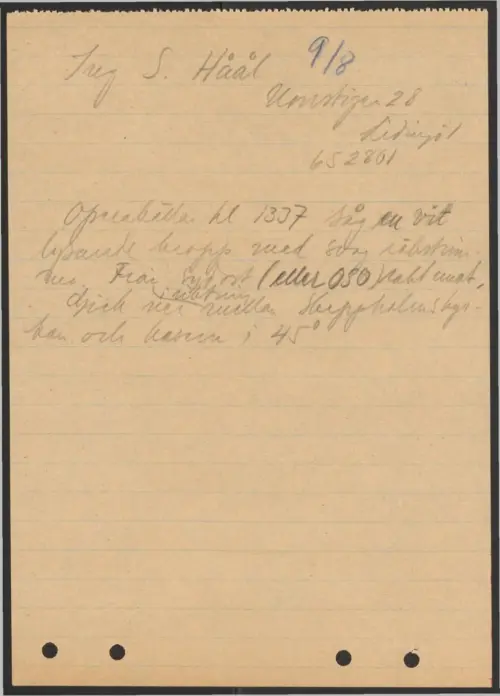 Ing S. Håål 9/8
Uonstigen 28
Lidingö 1
652801
Operabåtla kl 1337 Såg en vit
lysande kropp med svag
Från syd ost (eller OSO) rakt mot,
Gick ner mellan Skeppsholmskyr-
kan och kasern i 45°